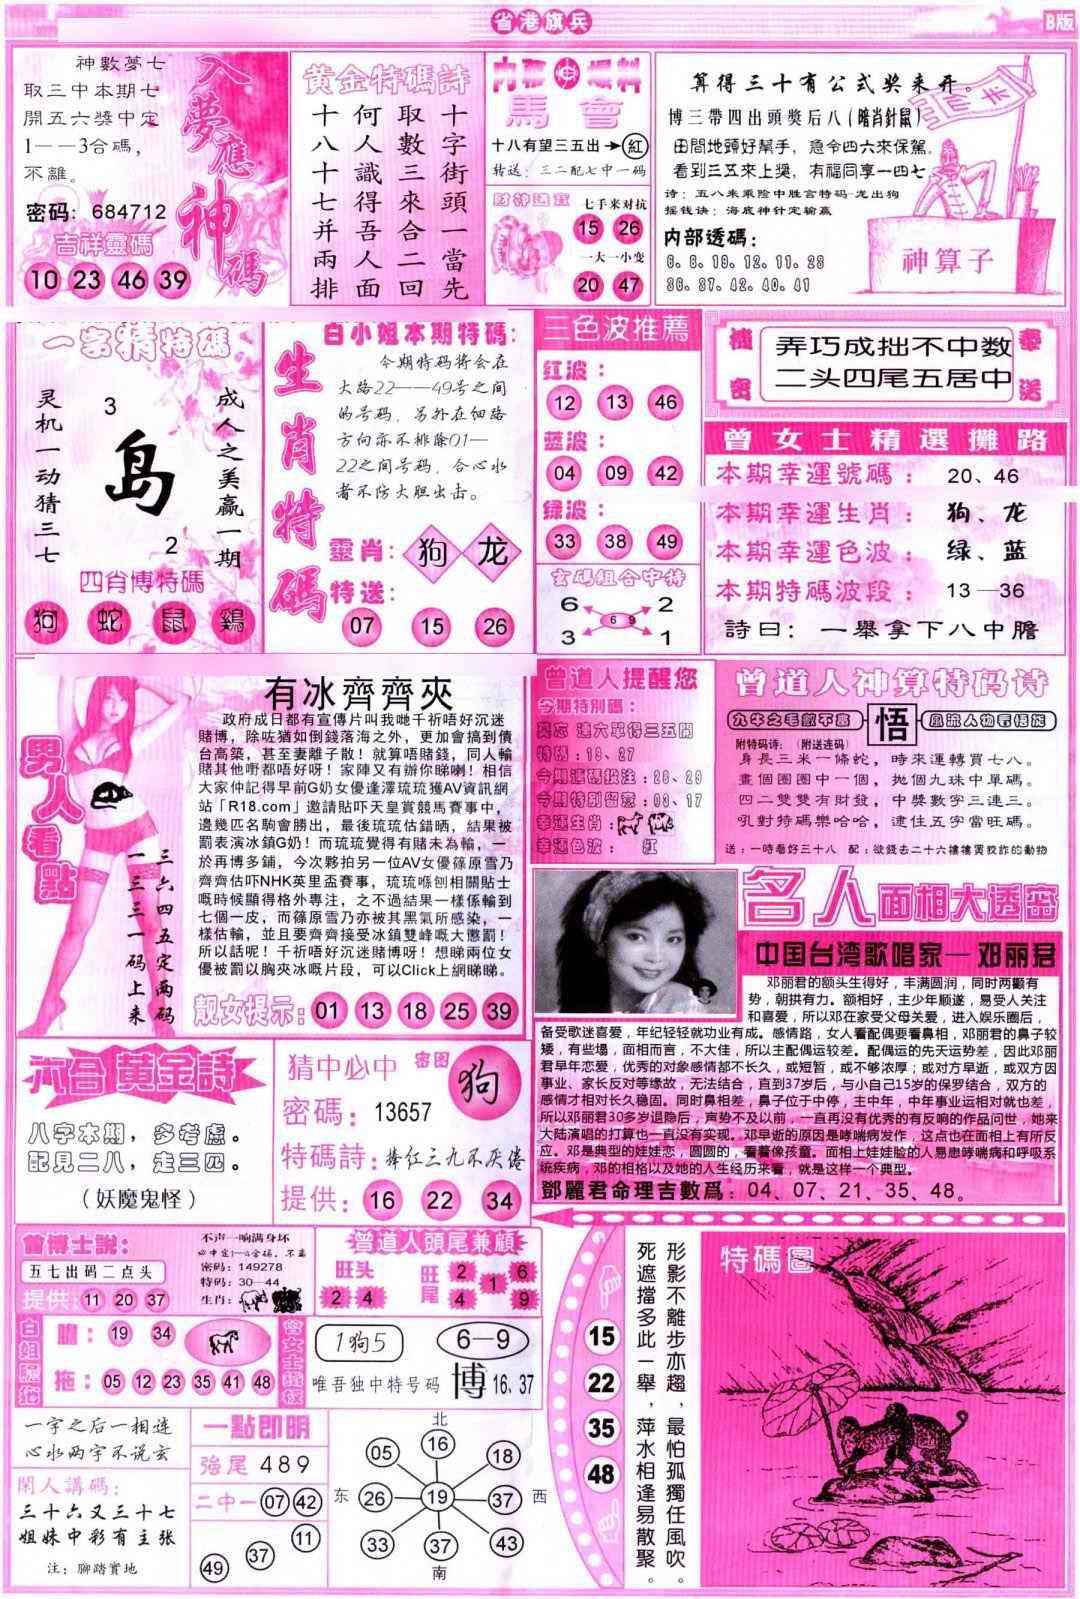 省港旗兵
B版
神數夢七
取三中本期七
開五六獎中定
1——3合碼，
不離。
密码：684712
吉祥靈碼
10 23 46 39
入夢應神碼
黄金特碼詩
十字街頭一當先
取數三來合二回
何人識得吾人面
十八十七并兩排
馬會
十八有望三五出→紅
转送：三二配七中一码
七手来对抗
15 26
一大一小变
20 47
算得三十有公式奖来开。
博三带四出頭獎后八(瞻肖針鼠)
田間地頭好幫手，急令四六來保駕。
看到三五來上獎，有福同享一四七
诗：五八来乘险中胜言特码-龙出狗
摇钱诀：海底神针定输赢
内部透碼：
36.37.42.40.41
神算子
一字猜特碼
成人之美赢一期
3
岛
2
灵机一动猜三七
四肖博特碼
狗 蛇 鼠 鷄
生肖特碼
白小姐本期特碼：
今期特码将会在
大路22——49号之间
的号码，另外在细路
方向亦不排除01—
22之间号码，合心水
者不防大胆出击。
靈肖：狗 龙
特送：
07 15 26
三色波推薦
红波：
12 13 46
蓝波：
04 09 42
绿波：
33 38 49
玄碼組合中特
6 2
6 9
3 1
弄巧成拙不中数
二头四尾五居中
曾女士精選攤路
本期幸運號碼：20、46
本期幸運生肖：狗、龙
本期幸運色波：绿、蓝
本期特碼波段：13—36
詩曰：一舉拿下八中膽
男人看點
三六四五定两码
一三三一码上来
有冰齊齊夾
政府成日都有宣傳片叫我哋千祈唔好沉迷
賭博，除咗猶如倒錢落海之外，更加會搞到債
台高築，甚至妻離子散！就算唔賭錢，同人輸
賭其他嘢都唔好呀！家陣又有辦你睇喇！相信
大家仲記得早前G奶女優逢澤琉琉獲AV資訊網
站「R18.com」邀請貼吓天皇賞競馬賽事中，
邊幾匹名駒會勝出，最後琉琉估錯晒，結果被
罰表演冰鎮G奶！而琉琉覺得有賭未為輸，一
於再博多鋪，今次夥拍另一位AV女優篠原雪乃
齊齊估吓NHK英里盃賽事，琉琉喺刨相關貼士
嘅時候顯得格外專注，之不過結果一樣係輸到
七個一皮，而篠原雪乃亦被其黑氣所感染，一
樣估輸，並且要齊齊接受冰鎮雙峰嘅大懲罰！
所以話呢！千祈唔好沉迷賭博呀！想睇兩位女
優被罰以胸夾冰嘅片段，可以Click上網睇睇。
靓女提示：01 13 18 25 39
曾道人提醒您
今期特別碼：
特碼：19、27
幸運生肖：
幸運色波：紅
曾道人神算特码诗
九牛之毛數不喜
悟
風流人物看悟派
附特码诗：(附送连码)
身長三米一條蛇，時來運轉買七八。
畫個圈圈中一個，抛個九珠中單碼。
四二雙雙有財發，中獎數字三連三。
吼對特碼樂哈哈，逮住五字當旺碼。
送：一時看好三十八 配：欲錢去二十六樓樓買狡詐的動物
名人面相大透密
中国台湾歌唱家—邓丽君
邓丽君的额头生得好，丰满圆润，同时两颧有
势，朝拱有力。额相好，主少年顺遂，易受人关注
和喜爱，所以邓在家受父母关爱，进入娱乐圈后，
备受歌迷喜爱，年纪轻轻就功业有成。感情路，女人看配偶要看鼻相，邓丽君的鼻子较
矮，有些塌，面相而言，不大佳，所以主配偶运较差。配偶运的先天运势差，因此邓丽
君早年恋爱，优秀的对象感情都不长久，或短暂，或不够浓厚；或对方早逝，或双方因
事业、家长反对等缘故，无法结合，直到37岁后，与小自己15岁的保罗结合，双方的
感情才相对长久稳固。同时鼻相差，鼻子位于中停，主中年，中年事业运相对就也差，
所以邓丽君30多岁退隐后，声势不及以前，一直再没有优秀的有反响的作品问世，她来
大陆演唱的打算也一直没有实现。邓早逝的原因是哮喘病发作，这点也在面相上有所反
应。邓是典型的娃娃恋，圆圆的，看着像孩童。面相上娃娃脸的人易患哮喘病和呼吸系
统疾病，邓的相格以及她的人生经历来看，就是这样一个典型。
鄧麗君命理吉數爲：04、07、21、35、48。
六合黄金詩
八字本期，多考慮。
配見二八，走三四。
(妖魔鬼怪)
猜中必中 密图
狗
密碼：13657
特碼詩：捧任三九不厌倦
提供：16 22 34
曾博士說：
五七出码二点头
提供：11 20 37
不声一响满身坏
密码：149278
特码：30—44
生肖：
曾道人頭尾兼顧
旺头
2 4
旺尾
2 1 6
4 9
膽：19 34
拖：05 12 23 35 41 48
1狗5
6—9
唯吾独中特号码 博 16、37
一字之后一相连
心水两字不说玄
閑人講碼：
三十六又三十七
姐妹中彩有主张
注：腳踏實地
一點即明
強尾 489
二中一 07 42
11
37
49
北
16
05 18
东 26 19 37 西
33 37 43
南
15
22
35
48
形影不離步亦趨，最怕孤獨任風吹。
死遮擋多此一舉，萍水相逢易散聚。
特碼圖